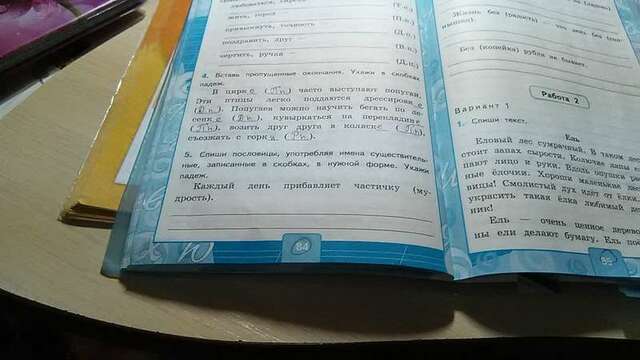 (Т.п.)
жить, город
(П.п.)
привыкнуть, точность
(Д.п.)
поздравить, друг
(В.п.)
чертить, ручка
(Д.п.)
4. Вставь пропущенные окончания. Укажи в скобках
падеж.
В цирке (Пп) часто выступают попугаи.
Эти птицы легко поддаются дрессировке
(Дп). Попугаев можно научить бегать по ле-
сенке (Дп), кувыркаться на перекладине
(Пп), возить друг друга в коляске (Пп),
съезжать с горки (Рп).
5. Спиши пословицы, употребляя имена существитель-
ные, записанные в скобках, в нужной форме. Укажи
падеж.
Каждый день прибавляет частичку (му-
дрость).
84
Жизнь без (радость)
Без (копейка) рубля не бывает.
Работа 2
Вариант 1
1. Спиши текст.
Ель
Еловый лес сумрачный. В таком
стоит запах сырости. Колючие лапы
пают лицо и руки. Вдоль опушки
ные ёлочки. Хороши маленькие
вицы! Смолистый дух идёт от ёлки.
украсить такая ёлка любимый
ник!
Ель — очень ценное дерево.
ны ели делают бумагу. Ель
85